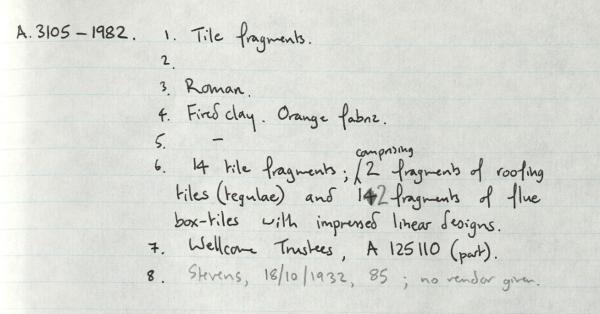 A. 3105 – 1982. 1. Tile fragments.
2.
3. Roman.
4. Fired clay. Orange fabric.
5. –
comprising
6. 14 tile fragments; / 2 fragments of roofing
tiles (tegulae) and 12 fragments of flue
box-tiles with impressed linear designs.
7. Wellcome Trustees, A 125110 (part).
8. Stevens, 18/10/1932, 85 ; no vendor given.